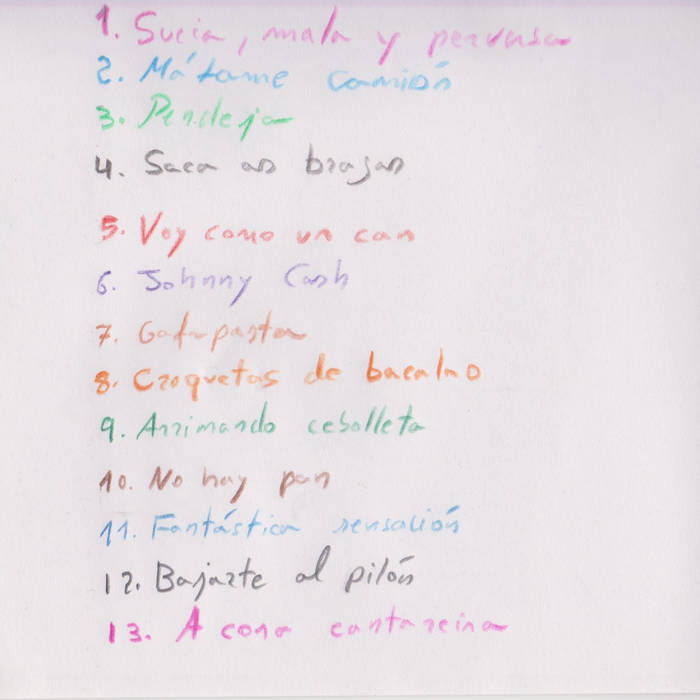 1. Sucia, mala y perversa
2. Mátame camión
3. Pendeja
4. Saca as bragas
5. Voy como un can
6. Johnny Cash
7. Gafapasta
8. Croquetas de bacalao
9. Arrimando cebolleta
10. No hay pan
11. Fantástica sensación
12. Bajarte al pilón
13. A cona cantareira